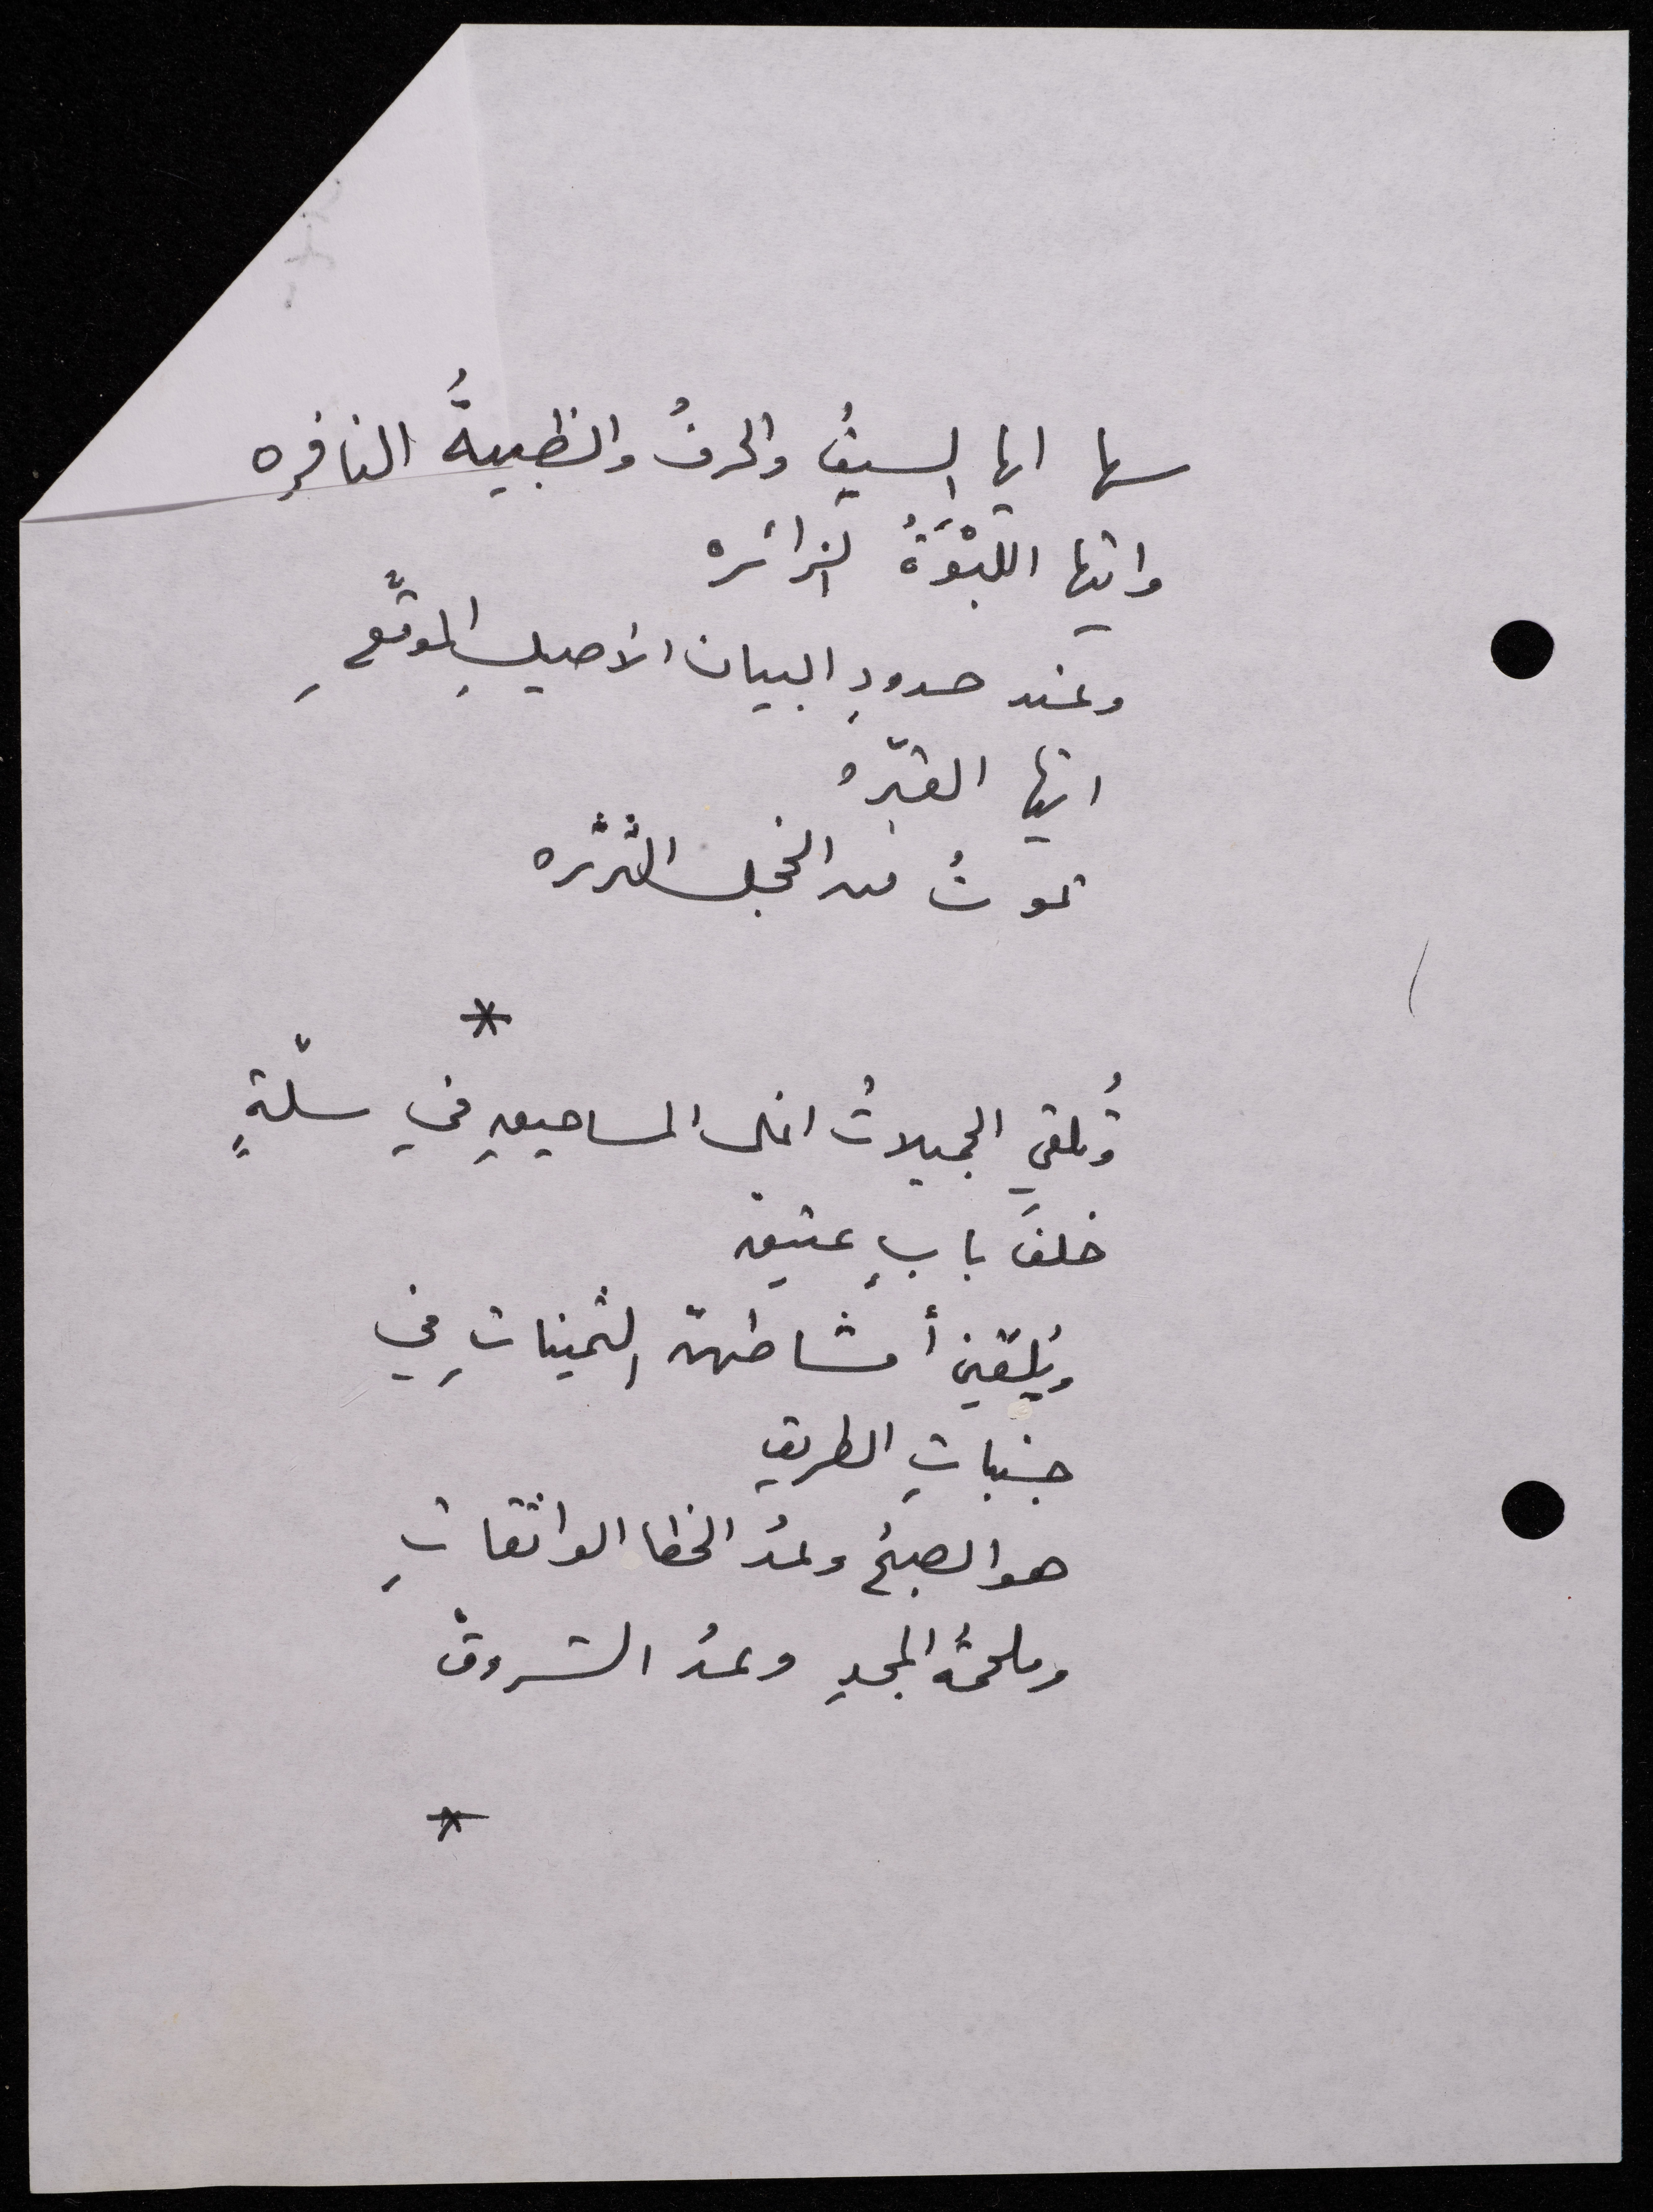 سها ايها السيفُ والحرفُ والظبيةُ النافره
وايتها اللبْوَةُ الزائره
وعند حدودِ البيان الأصيلِ الموقّعِ
ايتها القبّرهُ
تموتُ من الخجل الثرثره
*
وتُلقي الجميلاتُ اغلى المساحيقِ في سلّةٍ
خلفَ بابٍ عتيق
ويُلقين أمشاطهنّ الثميناتِ في
جنباتِ الطريق
هو الصبحُ وعدُ الخطا الواثقاتِ
وملحمةُ المجدِ وعدُ الشروقْ
*